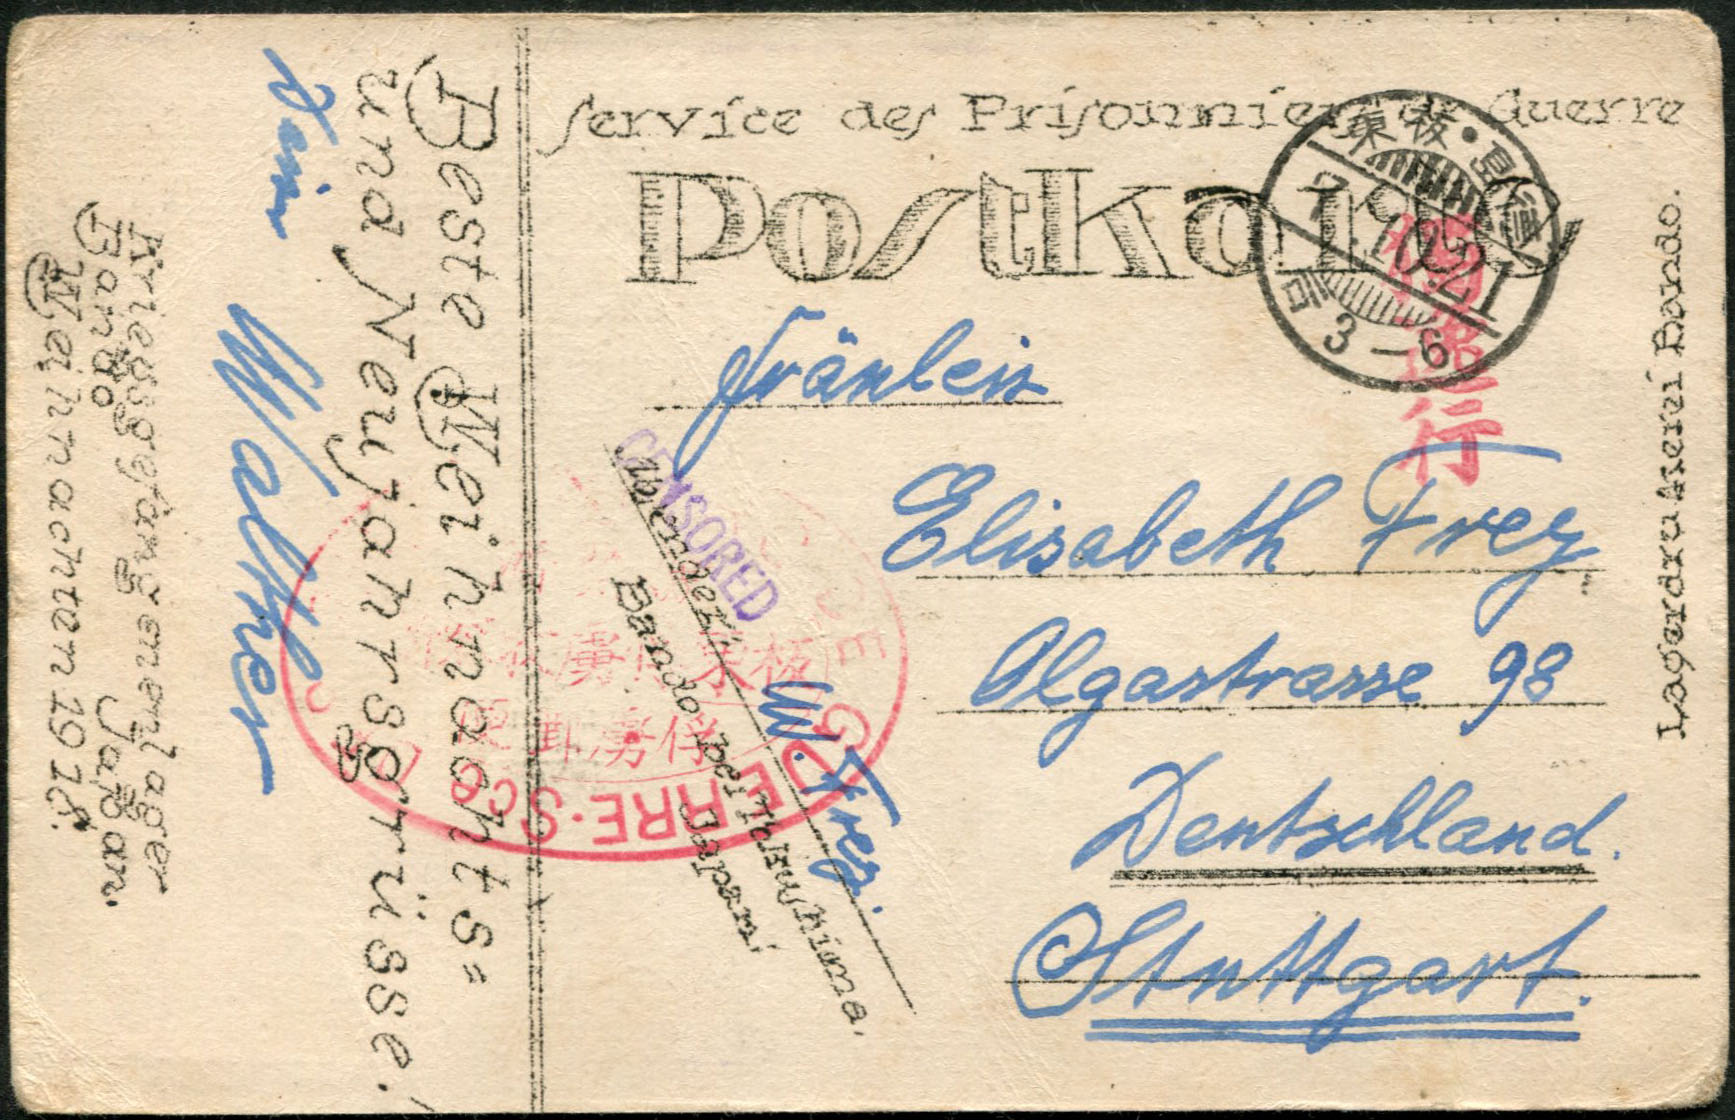 Service des Prisonniers de Guerre
Postkarte
Fräulein
Elisabeth Frey
Olgastrasse 98
Deutschland.
Stuttgart.
Lagerdruckerei Bando.
板東
7.10.21
3-6
行
CENSORED
Absender:
W. Frey.
Bando bei Tokushima.
Japan!
GUERRE·SCE
板東俘虜
俘虜郵便
Beste Weihnachts=
und Neujahrsgrüsse!
Dein Walther
Kriegsgefangenenlager
Bando Japan.
Weihnachten 1918.